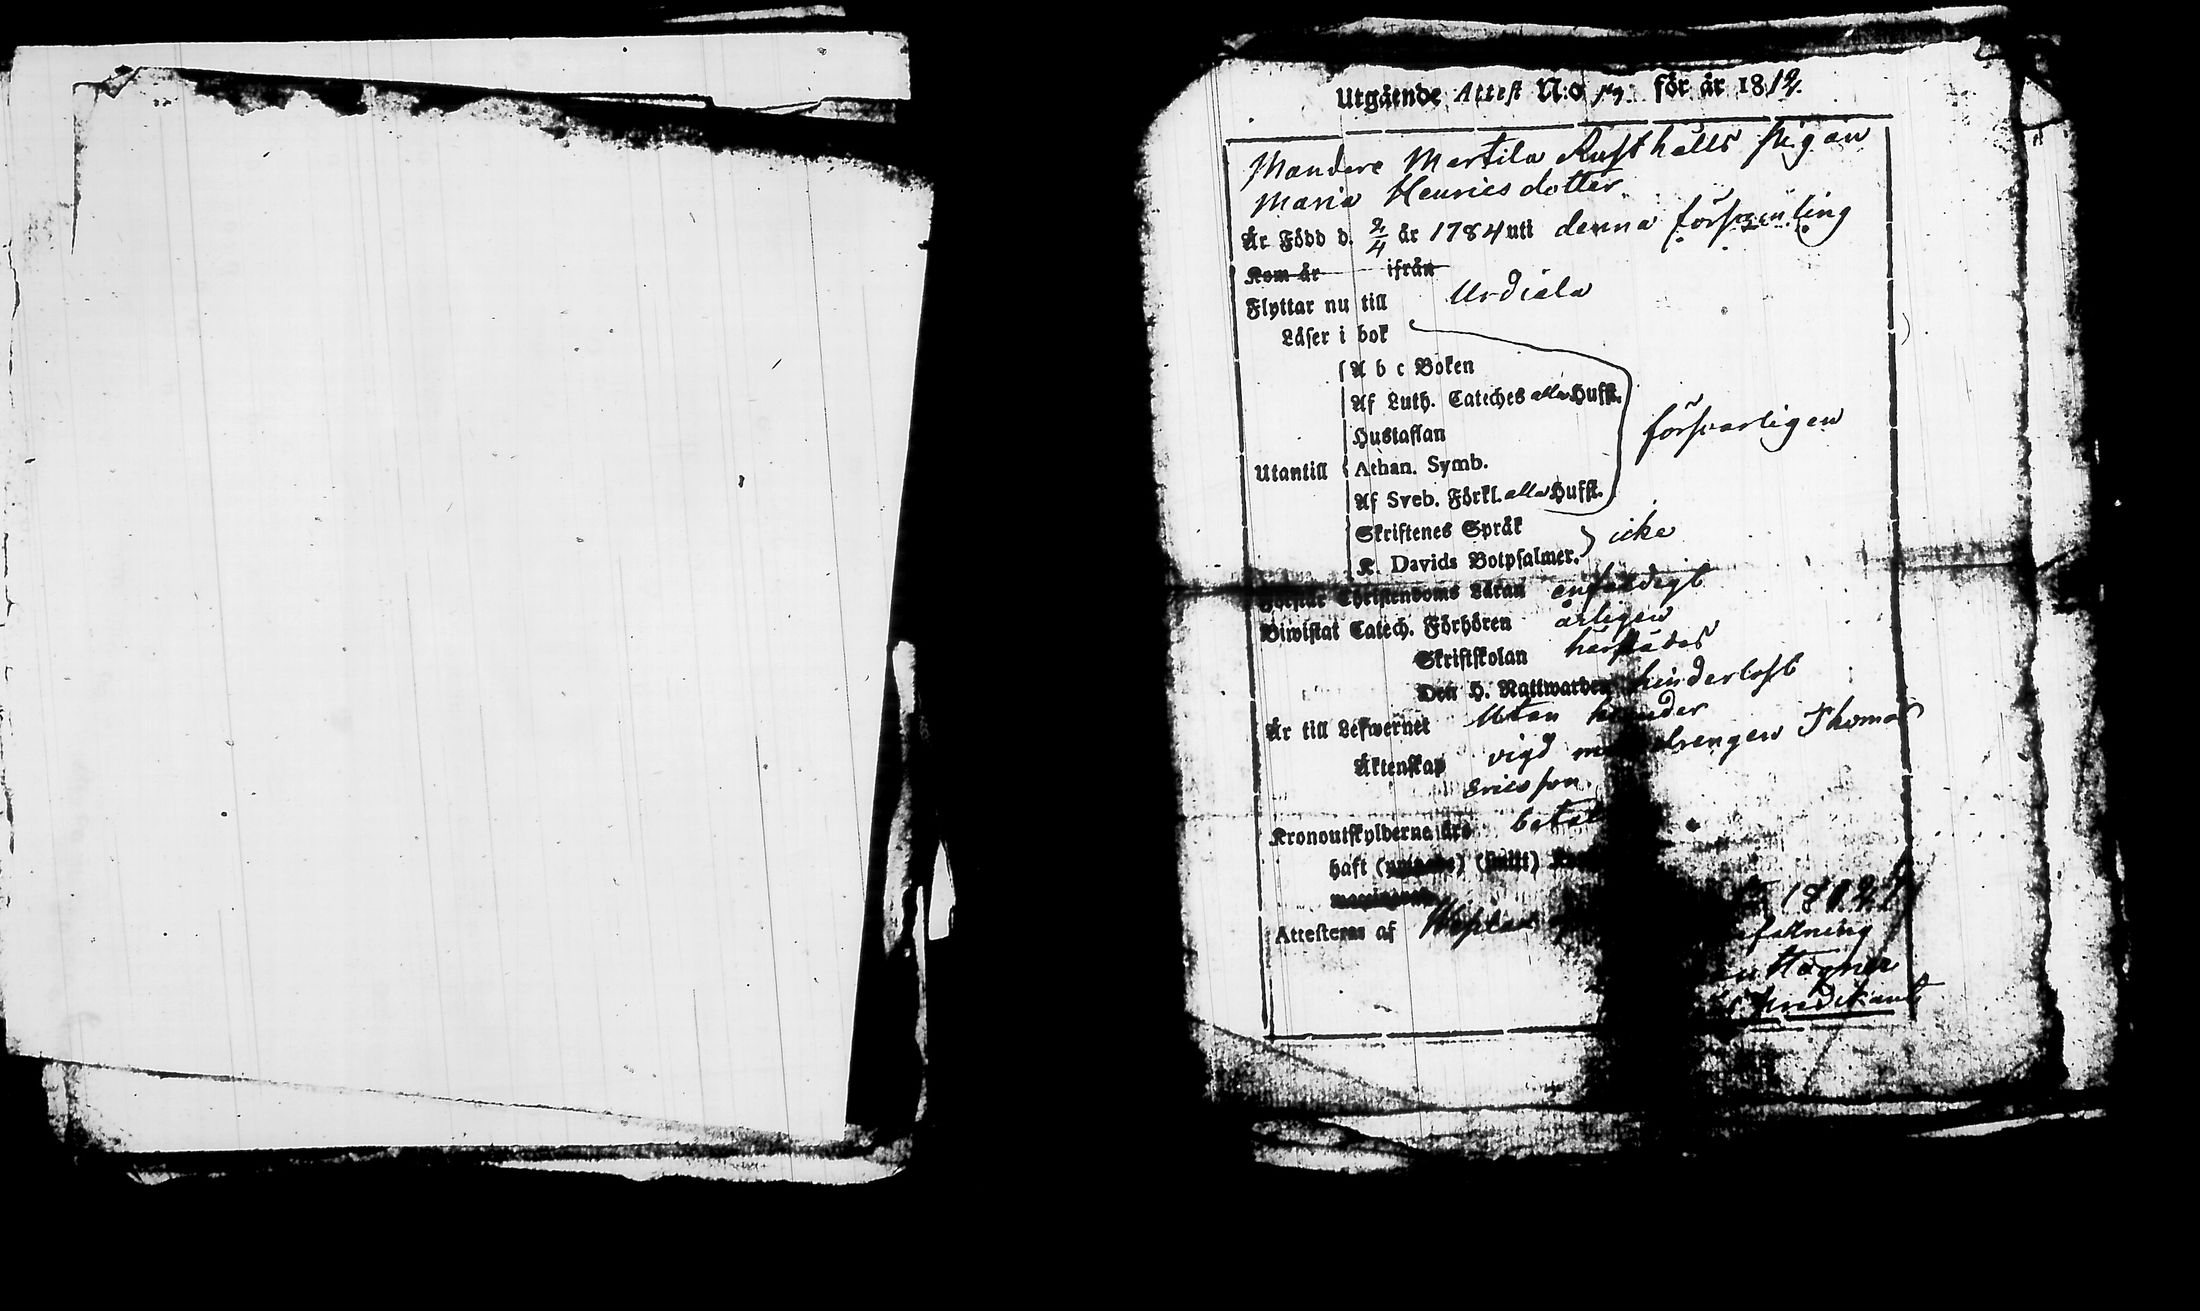 Utgående Attest N:o för år 1812.
Mandere Mertila Rusthålls pigan
Maria Henricsdotter
Är Född d. 2/4 år 1784 uti denna församling
Kom år ifrån
Flyttar nu till Urdiala
Läser i bok
A b c Boken
Af Luth. Cateches alla Hufst.
Hustaflan
försvarligen
Utantill Athan. Symb.
Af Sveb. Förkl. alla Hufst.
Skriftenes Språk
icke
K. Davids Botpsalmer.
Förstår Christendoms Läran enfaldigt
Biwistat Catech. Förhören årligen
Skriftskolan härstädes
Den H. Nattwarden hinderlöst
Är till Lefwernet utan
Äktenskap vigd med drengen Thomas
Ericsson.
Kronoutskylderna äro
haft
Attesteras af 1812
Hagner
Predikant